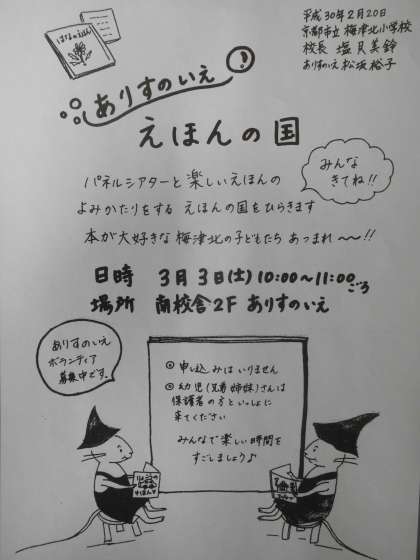 平成30年2月20日
京都市立 梅津北小学校
校長 塩貝美鈴
ありすのいえ 松坂裕子
はなのえほん
ありすのいえ
えほんの国
みんな
きてね!!
パネルシアターと楽しいえほんの
よみかたりをする えほんの国をひらきます
本が大好きな梅津北の子どもたち あつまれ〜〜!!
日時 3月3日(土)10:00〜11:00ごろ
場所 南校舎2F ありすのいえ
ありすのいえ
ボランティア
募集中です。
◎ 申し込みはいりません
◎ 幼児(兄弟姉妹)さんは
保護者の方といっしょに
来てください
みんなで楽しい時間を
すごしましょう♪